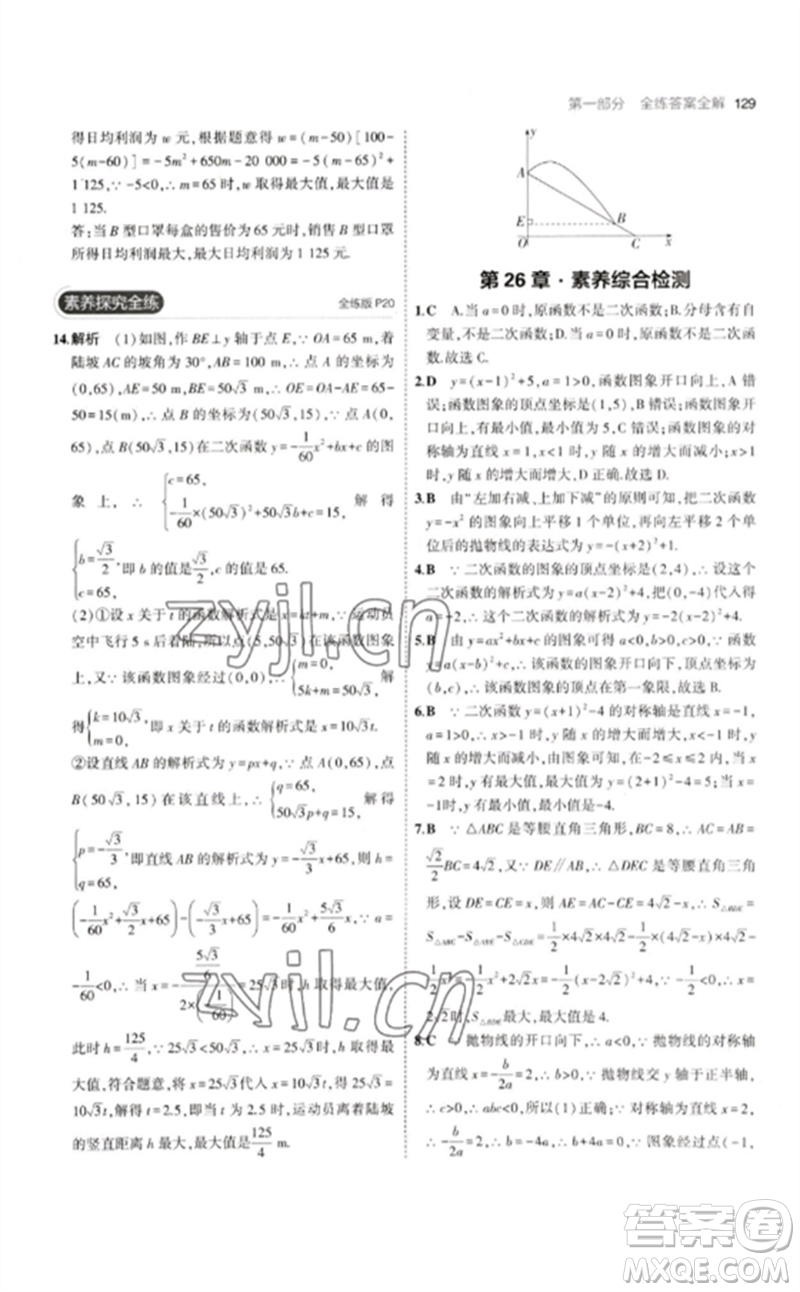 第一部分 全练答案全解 129
得日均利润为 w 元,根据题意得 w=(m-50)[100-
5(m-60)]=-5m²+650m-20 000=-5(m-65)²+
1 125,∵-5<0,∴m=65 时,w 取得最大值,最大值为
1 125.
答:当 B 型口罩每盒的售价为 65 元时,销售 B 型口罩
所得日均利润最大,最大日均利润为 1 125 元.
素养探究全练 全练版 P20
14.解析 (1)如图,作 BE⊥y 轴于点 E,∵OA=65 m,着
陆坡 AC 的坡角为 30°,AB=100 m,∴点 A 的坐标为
(0,65),AE=50 m,BE=50√3 m,∴OE=OA-AE=65-
50=15(m),∴点 B 的坐标为(50√3,15),∵点 A(0,
65),点 B(50√3,15)在二次函数 y=-1/60x²+bx+c 的图
象上,∴{c=65, -1/60×(50√3)²+50√3b+c=15, 解得
{b=√3/2, c=65, 即 b 的值是√3/2,c 的值是 65.
(2)①设 x 关于 t 的函数解析式是 x=kt+m,∵运动员
空中飞行 5 s 后着陆,所以点(5,50√3)在该函数图象
上,又∵该函数图象经过(0,0),∴{m=0, 5k+m=50√3, 解
得{k=10√3, m=0, 即 x 关于 t 的函数解析式是 x=10√3t.
②设直线 AB 的解析式为 y=px+q,∵点 A(0,65),点
B(50√3,15)在该直线上,∴{q=65, 50√3p+q=15, 解得
{p=-√3/3, q=65, 即直线 AB 的解析式为 y=-√3/3x+65,则 h=
(-1/60x²+√3/2x+65)-(-√3/3x+65)=-1/60x²+5√3/6x,∵a=
-1/60<0,∴当 x=-(5√3/6)/(2×(-1/60))=25√3时,h 取得最大值,
此时 h=125/4,∵25√3<50√3,∴x=25√3时,h 取得最
大值,符合题意,将 x=25√3代入 x=10√3t,得 25√3=
10√3t,解得 t=2.5,∴当 t=2.5 时,运动员离着陆坡
的竖直距离 h 最大,最大值是125/4 m.
y
A
E
B
O
C
x
第 26 章·素养综合检测
1.C A.当 a=0 时,原函数不是二次函数;B.分母含有自
变量,不是二次函数;D.当 a=0 时,原函数不是二次函
数.故选 C.
2.D y=(x-1)²+5,a=1>0,函数图象开口向上,A 错
误;函数图象的顶点坐标是(1,5),B 错误;函数图象开
口向上,有最小值,最小值为 5,C 错误;函数图象的对
称轴为直线 x=1,x<1 时,y 随 x 的增大而减小;x>1
时,y 随 x 的增大而增大,D 正确.故选 D.
3.B 由“左加右减、上加下减”的原则可知,把二次函数
y=-x² 的图象向上平移 1 个单位,再向左平移 2 个单
位后的抛物线的表达式为 y=-(x+2)²+1.
4.B ∵二次函数的图象的顶点坐标是(2,4),∴设这个
二次函数的解析式为 y=a(x-2)²+4,把(0,-4)代入得
a=-2,∴这个二次函数的解析式为 y=-2(x-2)²+4.
5.B 由 y=ax²+bx+c 的图象可知,a<0,b>0,c>0,∵函数
y=a(x-b)²+c,∴该函数图象开口向下,顶点坐标为
(b,c),∴该函数图象的顶点在第一象限,故选 B.
6.B ∵二次函数 y=(x+1)²-4 的对称轴是直线 x=-1,
a=1>0,∴x>-1 时,y 随 x 的增大而增大,x<-1 时,
y 随 x 的增大而减小,由图象可知,在-2≤x≤2 内,
x=2 时,y 有最大值,最大值为 y=(2+1)²-4=5;当 x=
-1 时,y 有最小值,最小值是-4.
7.B ∵△ABC 是等腰直角三角形,BC=8,∴AC=AB=
√2/2BC=4√2,又∵DE∥AB,∴△CDE 是等腰直角三角
形,设 DE=CE=x,则 AE=AC-CE=4√2-x,∴S△BDE=
S△ABC-S△ABE-S△CDE=1/2×4√2×4√2-1/2×4√2×(4√2-x)-
1/2x²=-1/2x²+2√2x=-1/2(x-2√2)²+4,∴当 x=
2√2时,S△BDE的最大值为 4.
8.C 抛物线的开口向下,∴a<0,∵抛物线的对称轴
为直线 x=-b/2a=2>0,∴b>0,∵抛物线交 y 轴于正半轴,
∴c>0,∴abc<0,所以(1)正确;∵对称轴为直线 x=2,
∴-b/2a=2,∴b=-4a,∴b+4a=0,∵图象经过点(-1,
zyjl.cn
zyjl.cn
答案圈
MXQE.COM